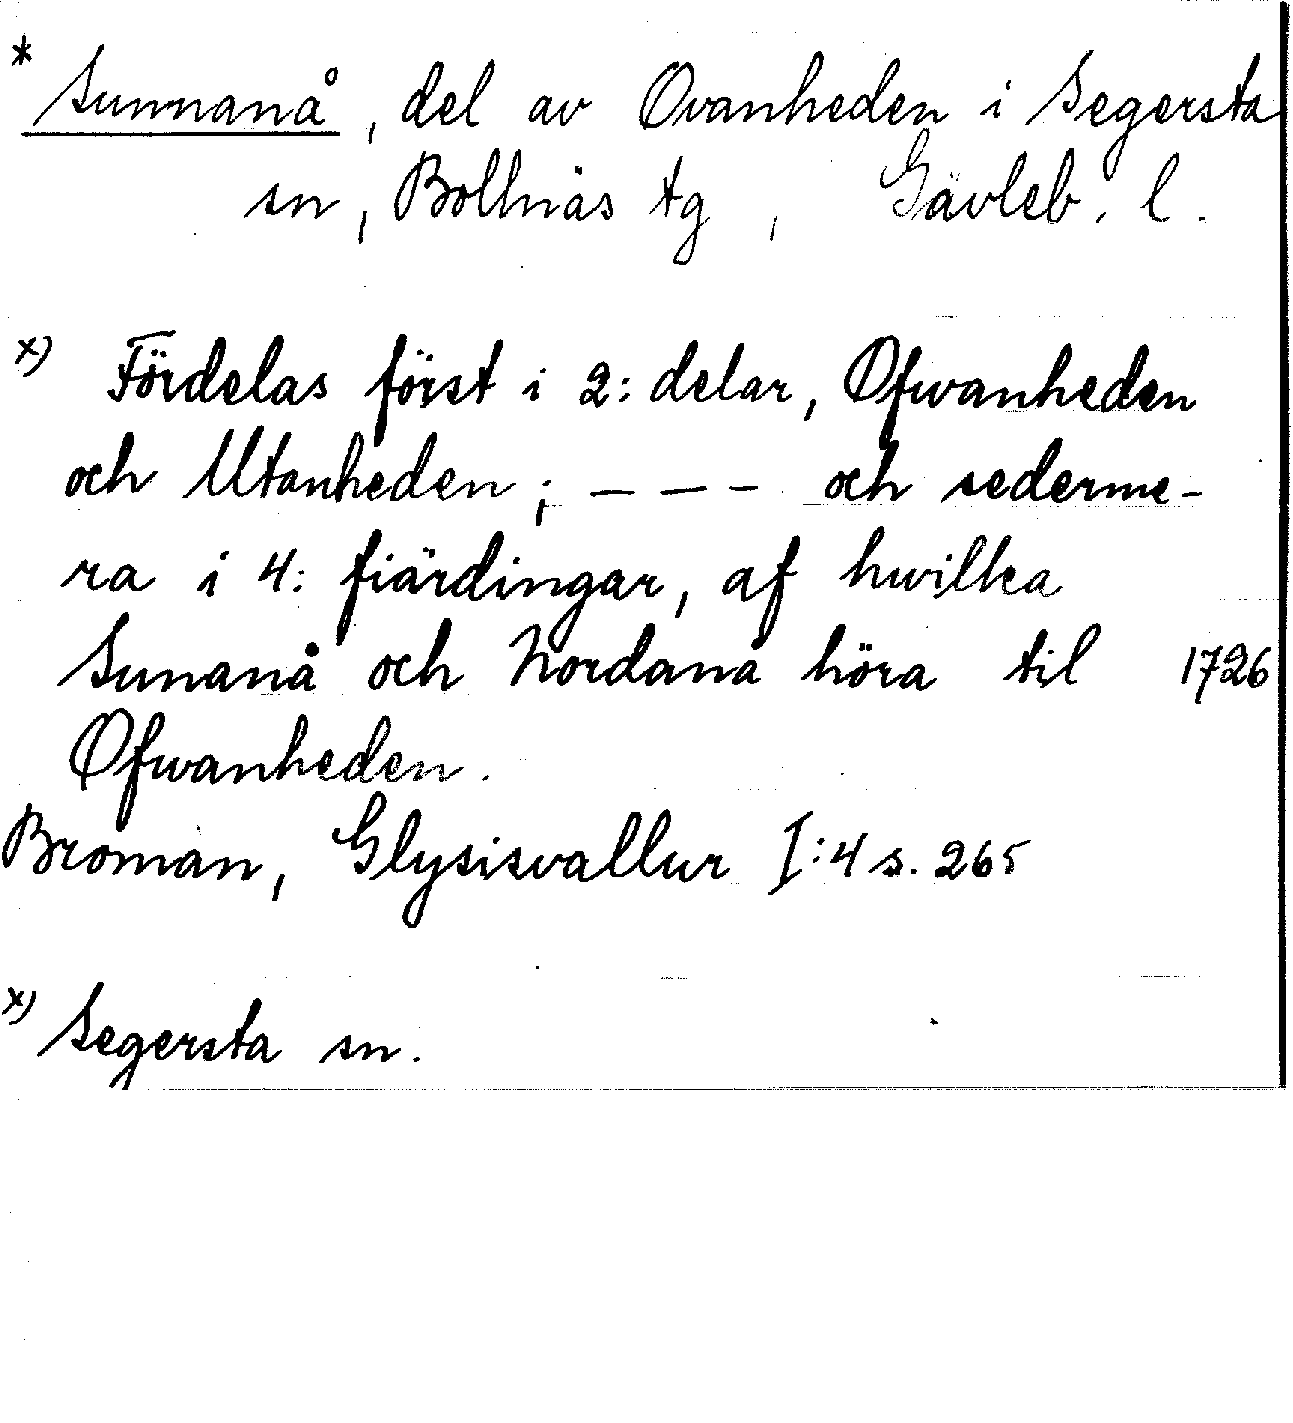 * Sunnanå, del av Ovanheden i Segersta
sn, Bollnäs tg, Gävleb. l.
x) Fördelas först i 2: delar, Ofwanheden
och Utanheden; – – – och sederme-
ra i 4: fiärdingar, af hwilka
Sunanå och Nordanå höra til 1726
Ofwanheden.
Broman, Glysisvallur I:4 s. 265
x) Segersta sn.